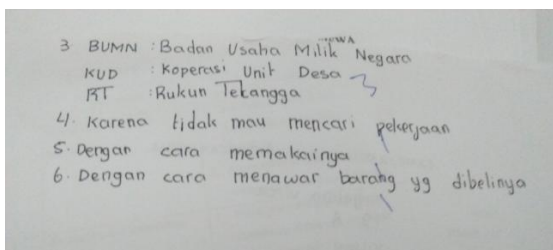 3 BUMN : Badan Usaha Milik Negara
KUD : Koperasi Unit Desa
RT : Rukun Tetangga
4. Karena tidak mau mencari pekerjaan
5. Dengan cara memakainya
6. Dengan cara menawar barang yg dibelinya